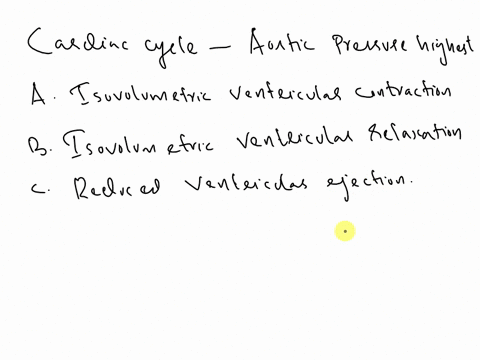 Cardiac cycle – Aortic Pressure highest
A. Isovolumetric ventricular contraction
B. Isovolumetric ventricular relaxation
C. Reduced ventricular ejection.